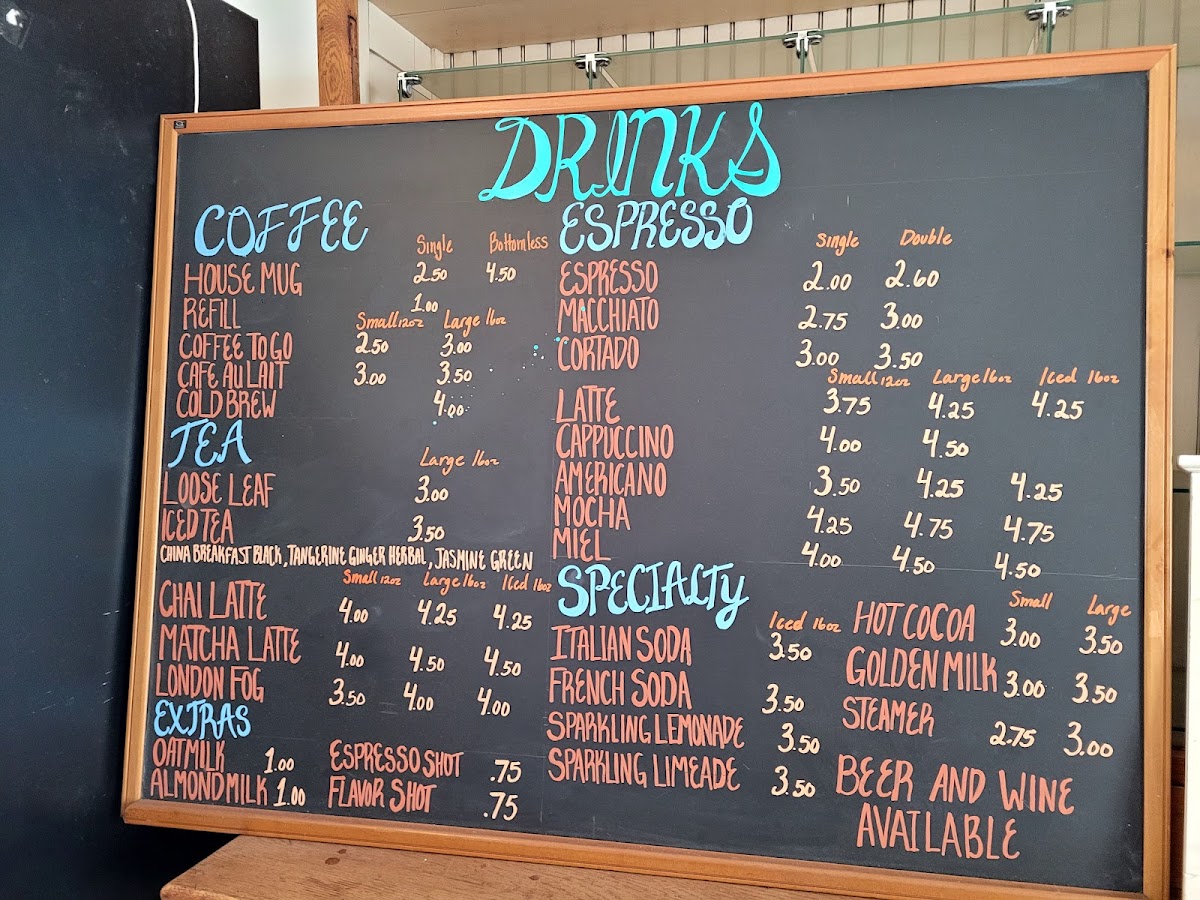 DRINKS
COFFEE
Single Bottomless
HOUSE MUG 2.50 4.50
REFILL 1.00
Small 12oz Large 16oz
COFFEE TO GO 2.50 3.00
CAFE AU LAIT 3.00 3.50
COLD BREW 4.00
TEA
Large 16oz
LOOSE LEAF 3.00
ICED TEA 3.50
CHINA BREAKFAST BLACK, TANGERINE GINGER HERBAL, JASMINE GREEN
Small 12oz Large 16oz Iced 16oz
CHAI LATTE 4.00 4.25 4.25
MATCHA LATTE 4.00 4.50 4.50
LONDON FOG 3.50 4.00 4.00
EXTRAS
OATMILK 1.00 ESPRESSO SHOT .75
ALMONDMILK 1.00 FLAVOR SHOT .75
ESPRESSO
Single Double
ESPRESSO 2.00 2.60
MACCHIATO 2.75 3.00
CORTADO 3.00 3.50
Small 12oz Large 16oz Iced 16oz
LATTE 3.75 4.25 4.25
CAPPUCCINO 4.00 4.50
AMERICANO 3.50 4.25 4.25
MOCHA 4.25 4.75 4.75
MIEL 4.00 4.50 4.50
SPECIALTY
Iced 16oz
ITALIAN SODA 3.50
FRENCH SODA 3.50
SPARKLING LEMONADE 3.50
SPARKLING LIMEADE 3.50
Small Large
HOT COCOA 3.00 3.50
GOLDEN MILK 3.00 3.50
STEAMER 2.75 3.00
BEER AND WINE
AVAILABLE